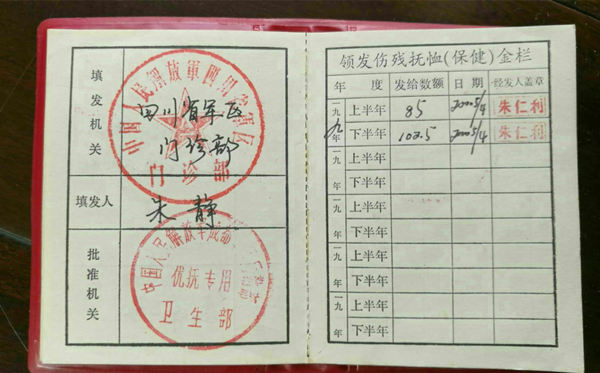 填发机关
四川省军区
门诊部
中国人民解放军四川省军区
门诊部
填发人
朱静
批准机关
优抚专用
卫生部
领发伤残抚恤(保健)金栏
年 度 发给数额 日 期 经发人盖章
一九九年 上半年 85 2000 5/4 朱仁利
下半年 102.5 2000 5/4 朱仁利
一九 年 上半年
下半年
一九 年 上半年
下半年
一九 年 上半年
下半年
一九 年 上半年
下半年